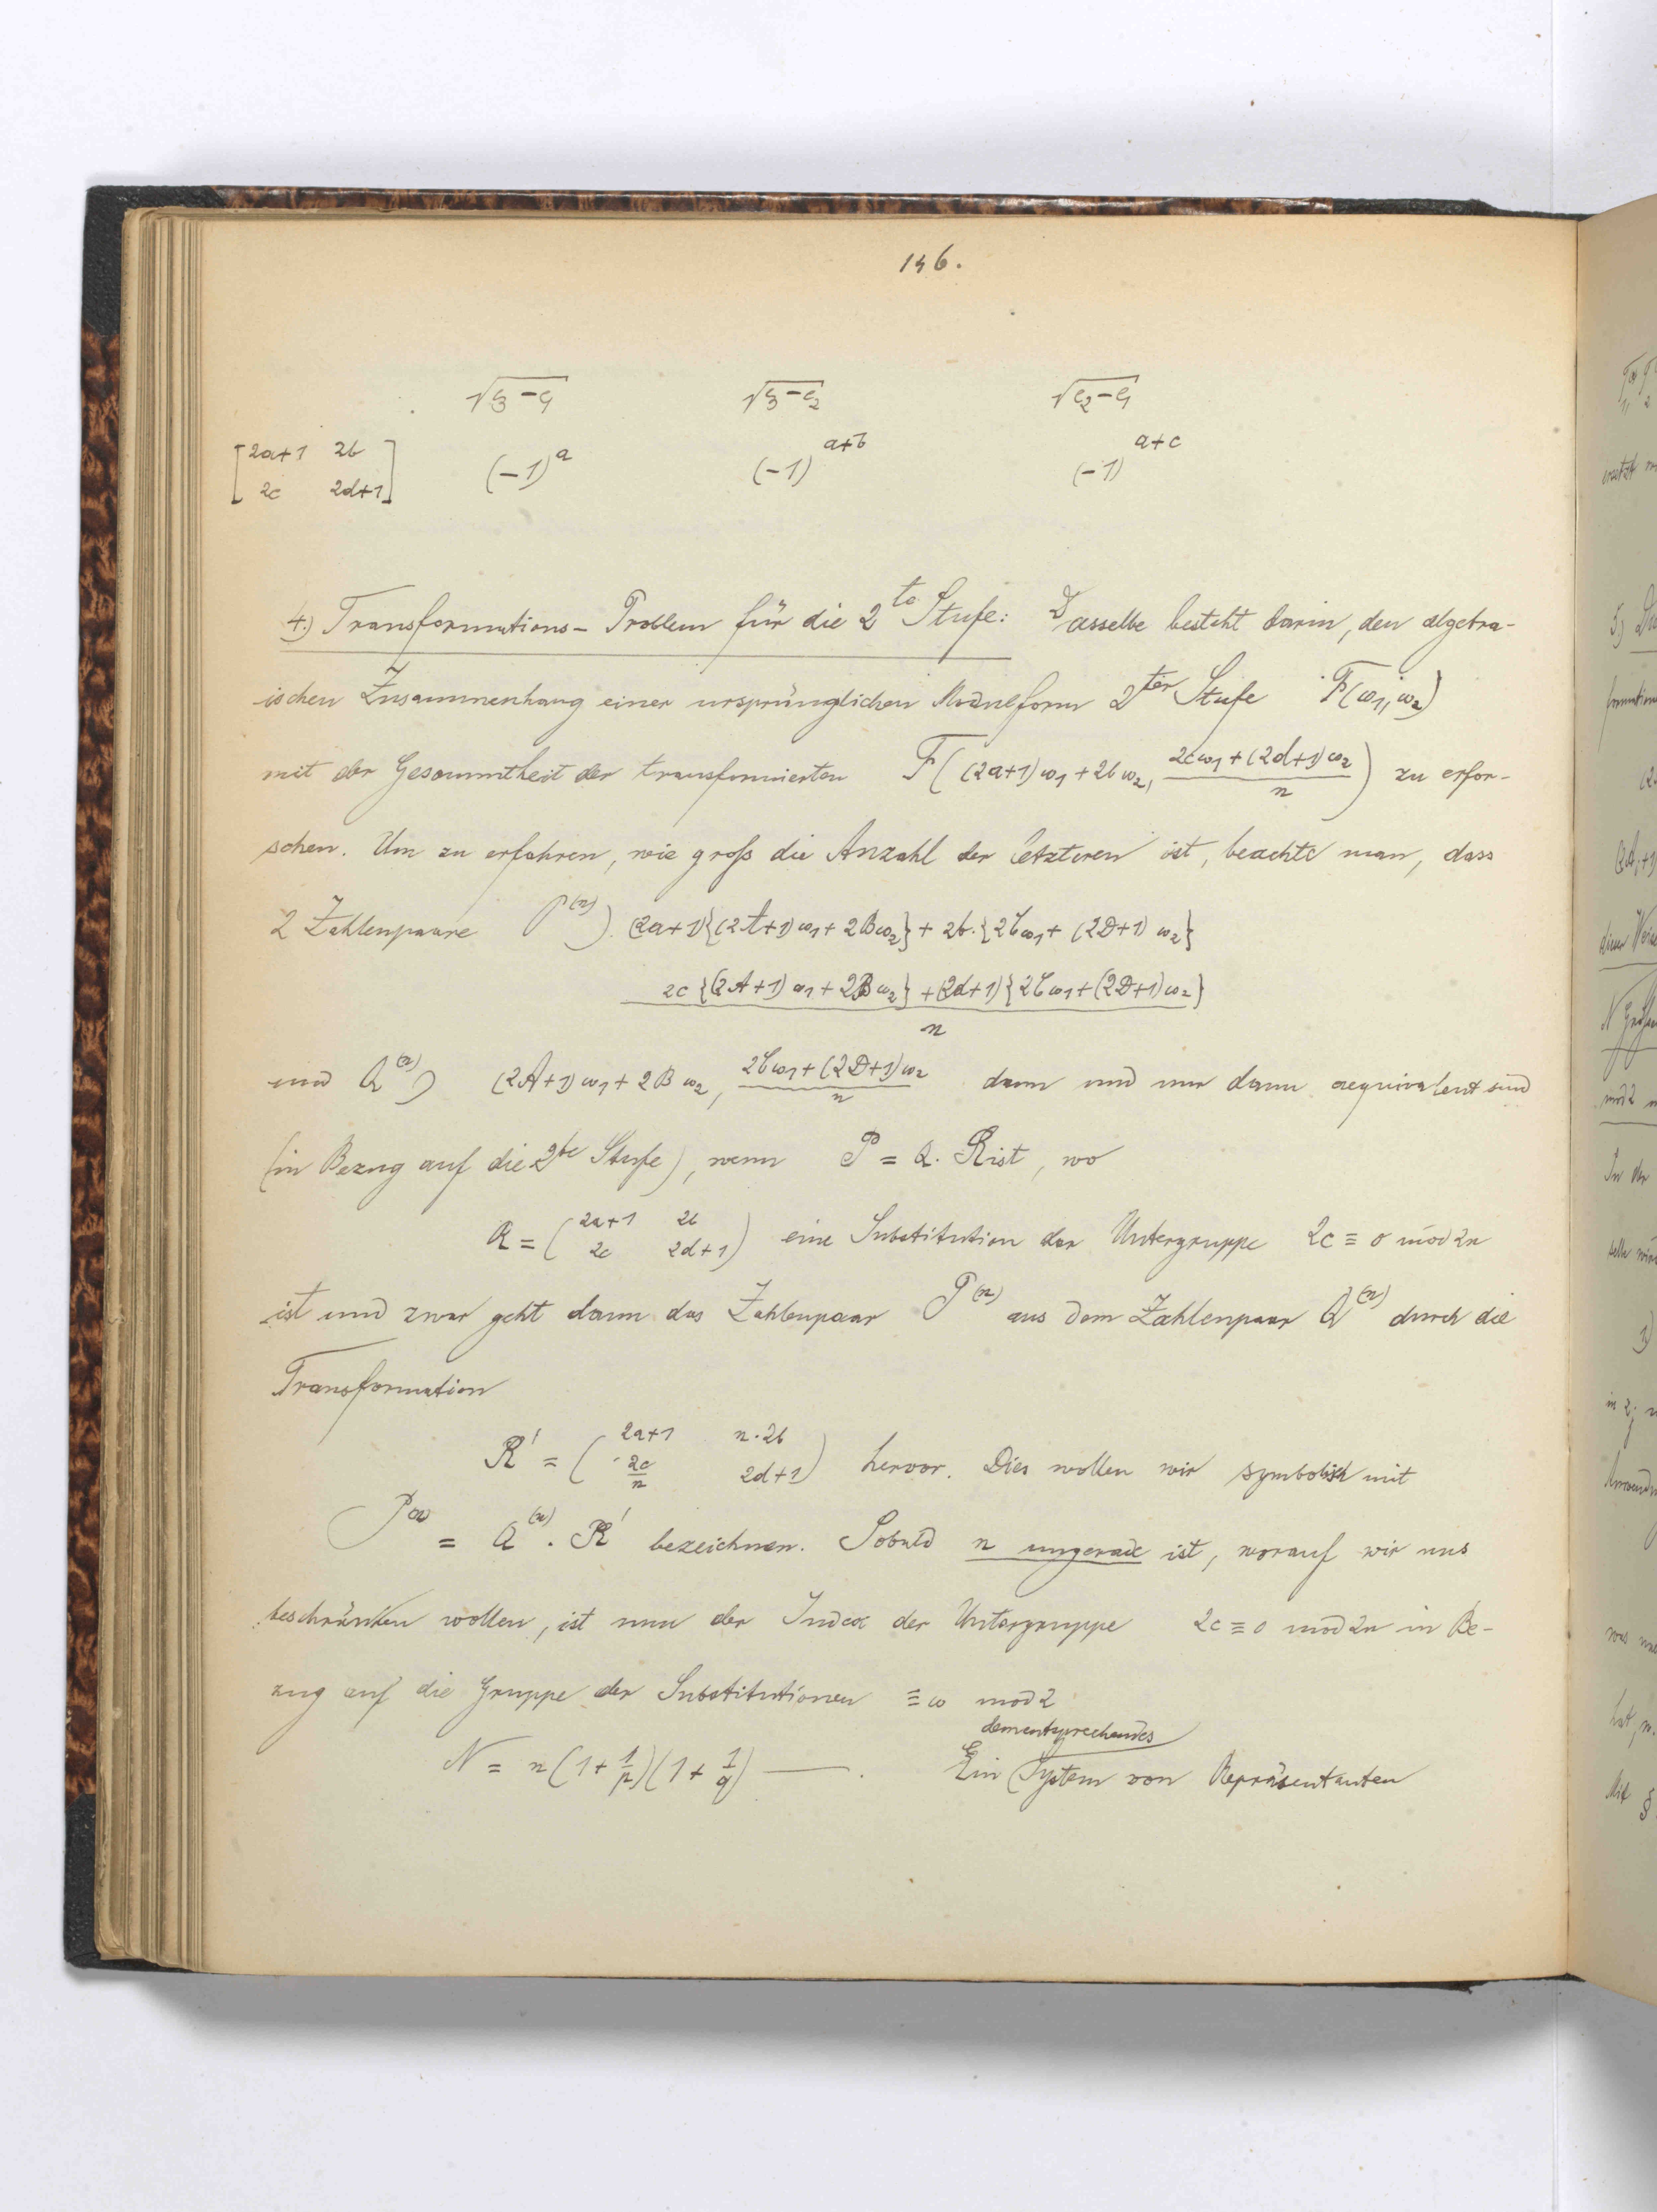 146.
√e3−e1   √e3−e2   √e2−e1
[2a+1 2b
2c 2d+1]   (−1)^a   (−1)^{a+b}   (−1)^{a+c}
4.) Transformations- Problem für die 2te Stufe: Dasselbe besteht darin, den algebra-
ischen Zusammenhang einer ursprünglichen Modulform 2ter Stufe F(ω1, ω2)
mit der Gesammtheit der transformierten F((2a+1)ω1 + 2bω2, (2cω1 + (2d+1)ω2)/n) zu erfor-
schen. Um zu erfahren, wie groß die Anzahl der letzteren ist, beachte man, dass
2 Zahlenpaare P^(n)) (2a+1){(2A+1)ω1 + 2Bω2} + 2b·{2Cω1 + (2D+1)ω2}
2c{(2A+1)ω1 + 2Bω2} + (2d+1){2Cω1 + (2D+1)ω2}
n
und Q^(n)) (2A+1)ω1 + 2Bω2, (2Cω1 + (2D+1)ω2)/n dann und nur dann aequivalent sind
(in Bezug auf die 2te Stufe), wenn P = Q. R ist, wo
R = (2a+1 2b
2c 2d+1) eine Substitution der Untergruppe 2c ≡ 0 mod 2n
ist und zwar geht dann das Zahlenpaar P^(n) aus dem Zahlenpaar Q^(n) durch die
Transformation
R' = (2a+1 n·2b
2c/n 2d+1) hervor. Dies wollen wir symbolisch mit
P^(n) = Q^(n) . R' bezeichnen. Sobald n ungerade ist, worauf wir uns
beschränken wollen, ist nun der Index der Untergruppe 2c ≡ 0 mod 2n in Be-
zug auf die Gruppe der Substitutionen ≡ ω mod 2
dementsprechendes
N = n(1+1/p)(1+1/q) —. Ein System von Repräsentanten